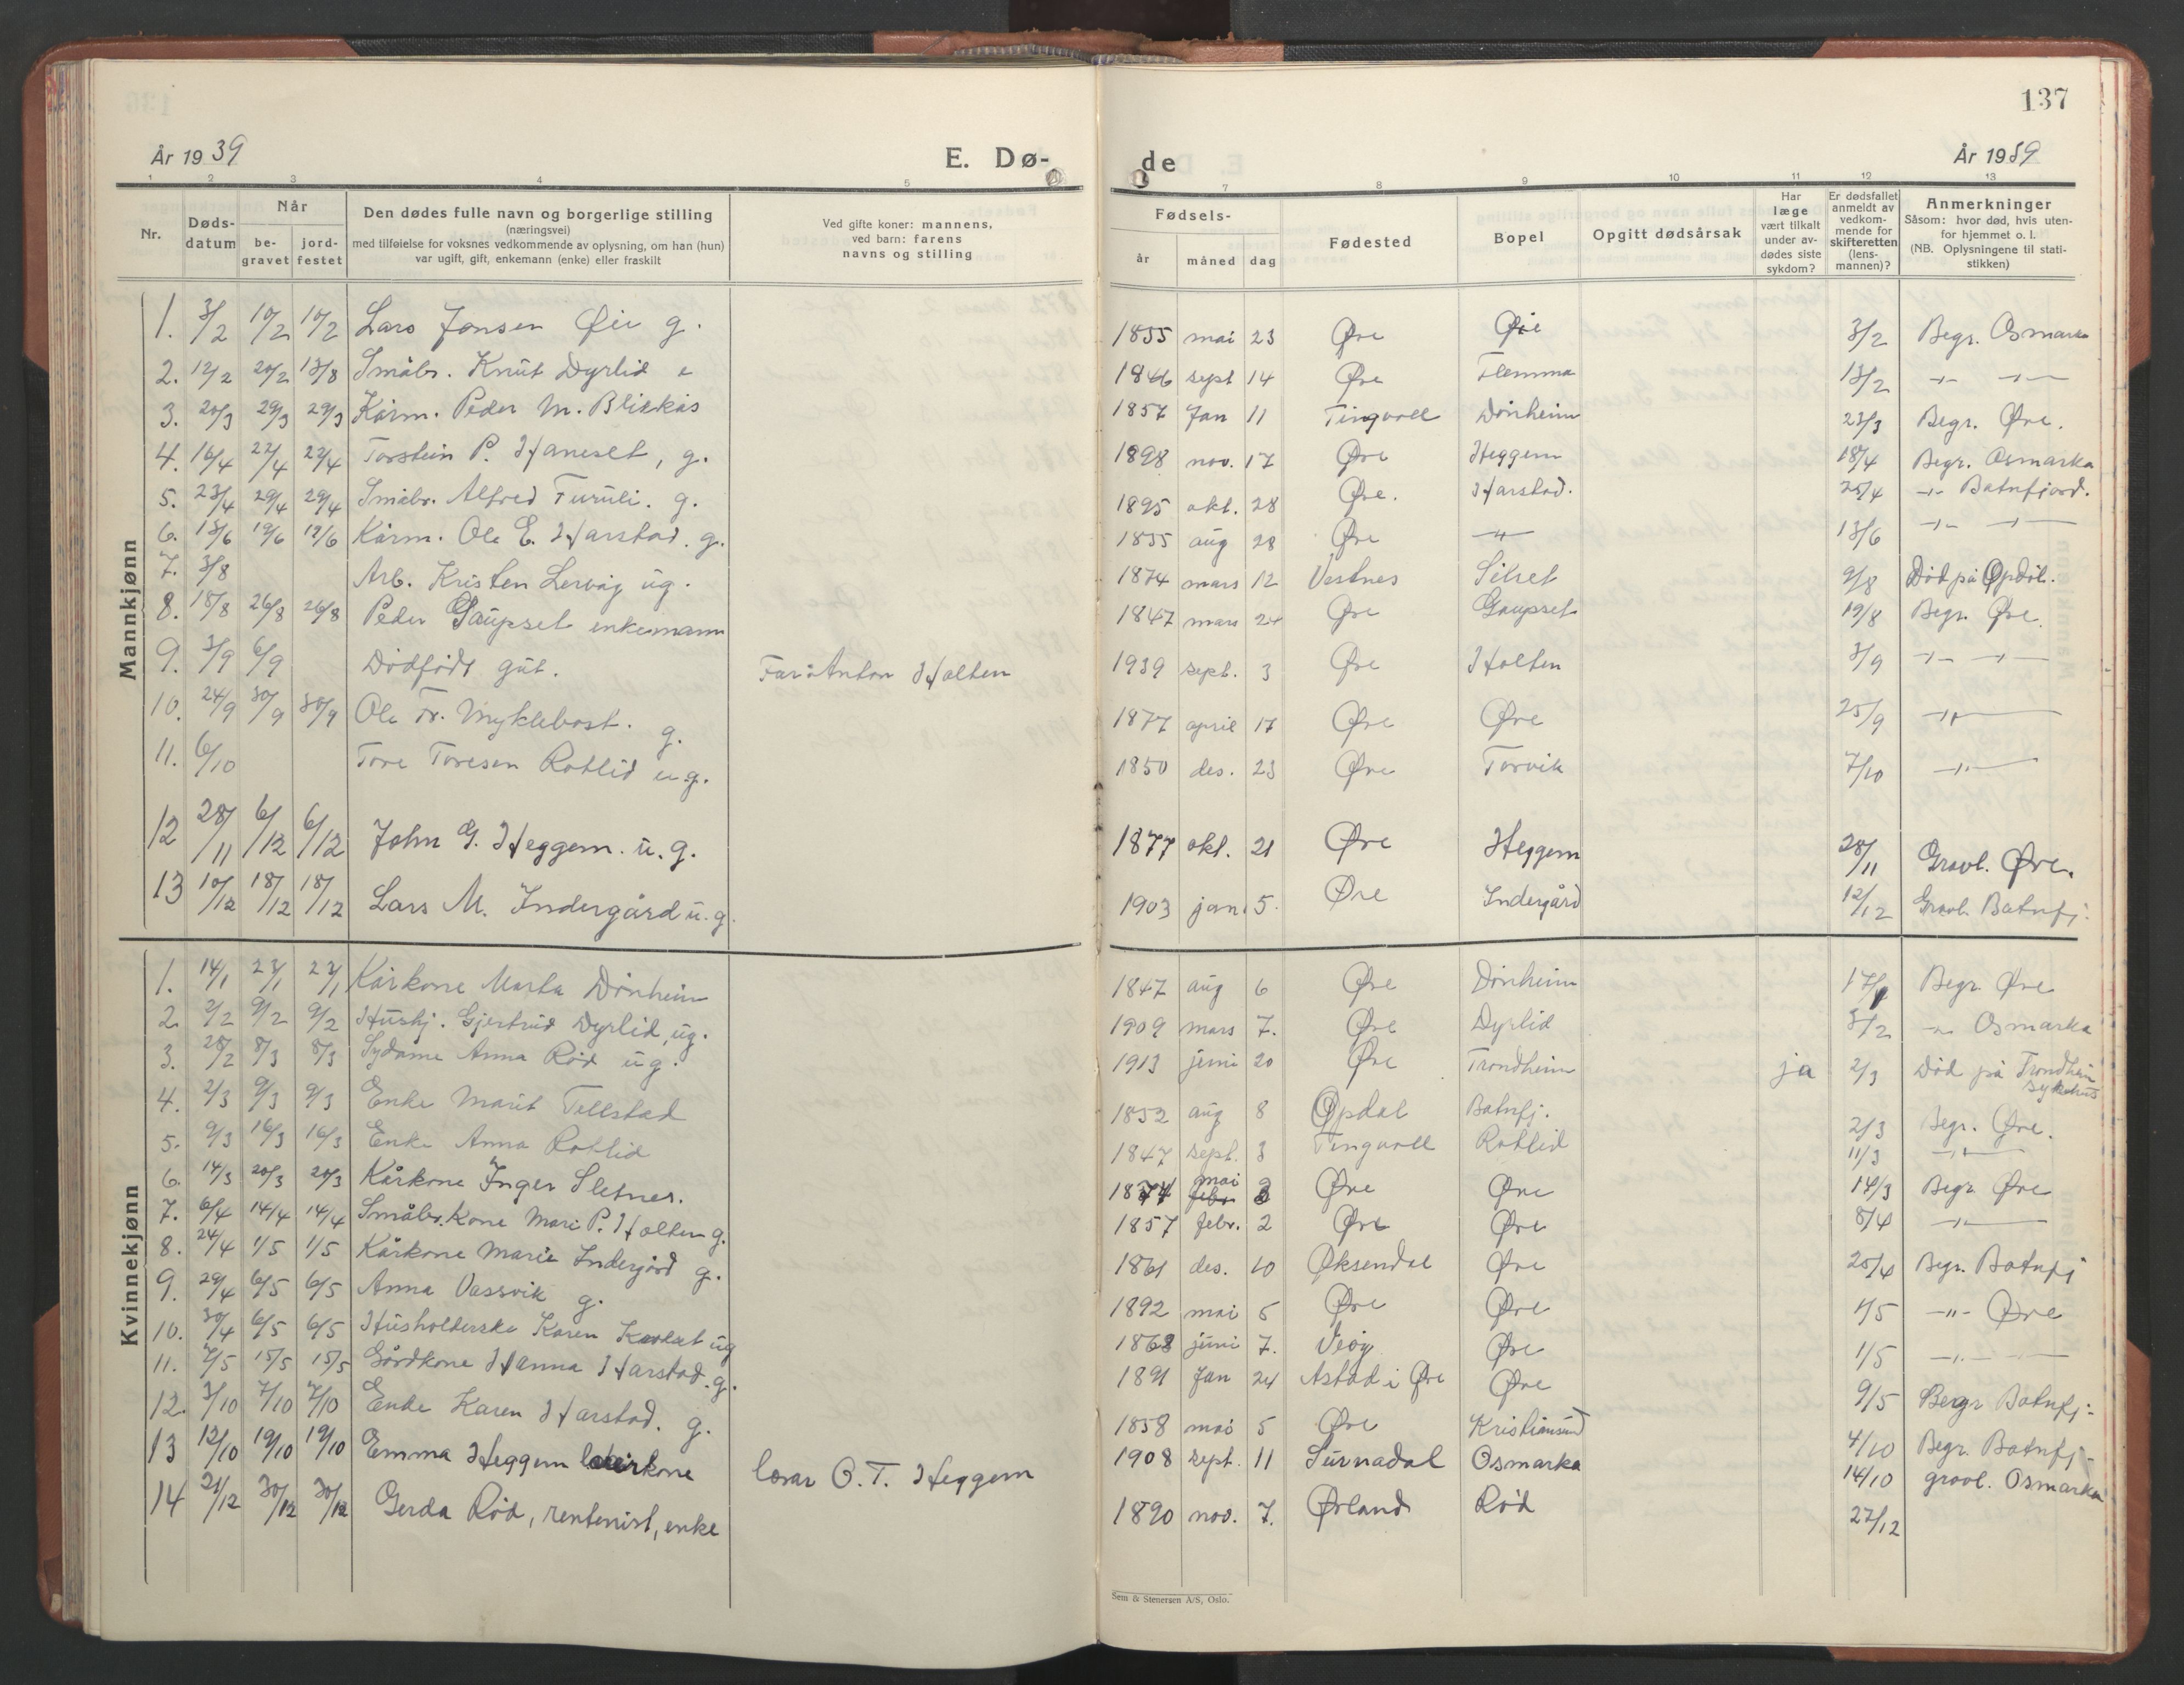 137
År 1939 E. Dø- de År 1939
1 2 3 4 5 7 8 9 10 11 12 13
Nr. Døds-datum Når be-gravet jord-festet Den dødes fulle navn og borgerlige stilling (næringsvei) med tilføielse for voksnes vedkommende av oplysning, om han (hun) var ugift, gift, enkemann (enke) eller fraskilt Ved gifte koner: mannens, ved barn: farens navns og stilling Fødsels- år måned dag Fødested Bopel Opgitt dødsårsak Har læge vært tilkalt under av-dødes siste sykdom? Er dødsfallet anmeldt av vedkom-mende for skifteretten (lens-mannen)? Anmerkninger Såsom: hvor død, hvis uten-for hjemmet o. l. (NB. Oplysningene til stati-stikken)
Mannkjønn
1. 3/2 10/2 10/2 Lars Jonsen Øie g. 1855 mai 23 Øre Øie 3/2 Begr. Osmarka
2. 12/2 20/2 13/8 Småbr. Knut Dyrlid e 1846 sept 14 Øre Flemma 13/2 -"- -"-
3. 20/3 29/3 29/3 Kårm. Peder M. Blikkås 1857 Jan 11 Tingvoll Dønheim 23/3 Begr. Øre.
4. 16/4 22/4 22/4 Torstein P. Haneset, g. 1898 nov. 17 Øre Heggem 18/4 Begr. Osmarka
5. 23/4 29/4 29/4 Småbr. Alfred Furuli. g. 1895 okt. 28 Øre. Harstad. 25/4 -"- Batnfjord.
6. 13/6 19/6 19/6 Kårm. Ole E. Harstad. g. 1855 aug 28 Øre -"- 13/6 -"- -"-
7. 3/8 Arb. Kristen Lervåg ug. 1874 mars 12 Vestnes Silset 9/8 Død på Opdöl.
8. 18/8 26/8 26/8 Peder Gaupset enkemann 1847 mars 24 Øre Gaupset 19/8 Begr. Øre.
9. 3/9 6/9 Dødfødt gut. Far: Anton Holten 1939 sept. 3 Øre Holten 3/9 -"- -"-
10. 24/9 30/9 30/9 Ole Tr. Myklebost. g. 1877 april 17 Øre Øre 25/9 -"-
11. 6/10 Tore Toresen Rotlid u.g. 1850 des. 23 Øre Torvik 7/10 -"-
12 28/11 6/12 6/12 John G. Heggem. u. g. 1877 okt. 21 Øre Heggem 28/11 Gravl. Øre.
13 10/12 18/12 18/12 Lars M. Indergård u.g. 1903 jan. 5. Øre Indergård 12/12 Gravl. Batnfj.
Kvinnekjønn
1. 14/1 23/1 23/1 Kårkone Marta Dönheim 1847 aug 6 Øre Dönheim 17/1 Begr Øre
2. 2/2 9/2 9/2 Hushj. Gjertrud Dyrlid, ug. 1909 mars 7. Øre Dyrlid 3/2 -"- Osmarka
3. 28/2 8/3 8/3 Sydame Anna Rød ug. 1913 juni 20 Øre Trondheim ja 2/3 Død på Trondheim sykehus
4. 2/3 9/3 9/3 Enke Marit Tellstad 1852 aug 8 Opdal Batnfj. 2/3 Begr. Øre.
5. 9/3 16/3 16/3 Enke Anna Rotlid 1847 sept. 3 Tingvoll Rotlid 11/3 -"-
6. 14/3 20/3 20/3 Kårkone Inger Sletnes. 1874 mai Øre Øre 14/3 Begr Øre
7. 6/4 14/4 14/4 Småbr. Kone Mari P. Holten g. 1857 febr. 2 Øre Øre 8/4 -"-
8. 24/4 1/5 1/5 Kårkone Marie Indergård g. 1861 des. 10 Øksendal Øre 25/4 Begr. Batnfj
9. 29/4 6/5 6/5 Anna Vassvik g. 1892 mai 5 Øre Øre 1/5 -"- Øre
10. 30/4 6/5 6/5 Husholderske Karen ug 1868 juni 7. Veøy Øre 1/5 -"-
11. 7/5 15/5 15/5 Gårdkone Hanna Harstad. g. 1891 Jan 24 Astad i Øre Øre 9/5 Begr Batnfj.
12. 3/10 7/10 7/10 Enke Karen Harstad. g. 1858 mai 5 Øre Kristiansund 4/10 Begr. Batnfj.
13 12/10 19/10 19/10 Emma Heggem lærerkone lærar O. T. Heggem 1908 sept. 11 Surnadal Osmarka 14/10 gravl. Osmarka
14 21/12 30/12 30/12 Gerda Röd, rentenist, enke 1890 nov. 7. Ørland Röd 27/12
Sem & Stenersen A/S, Oslo.